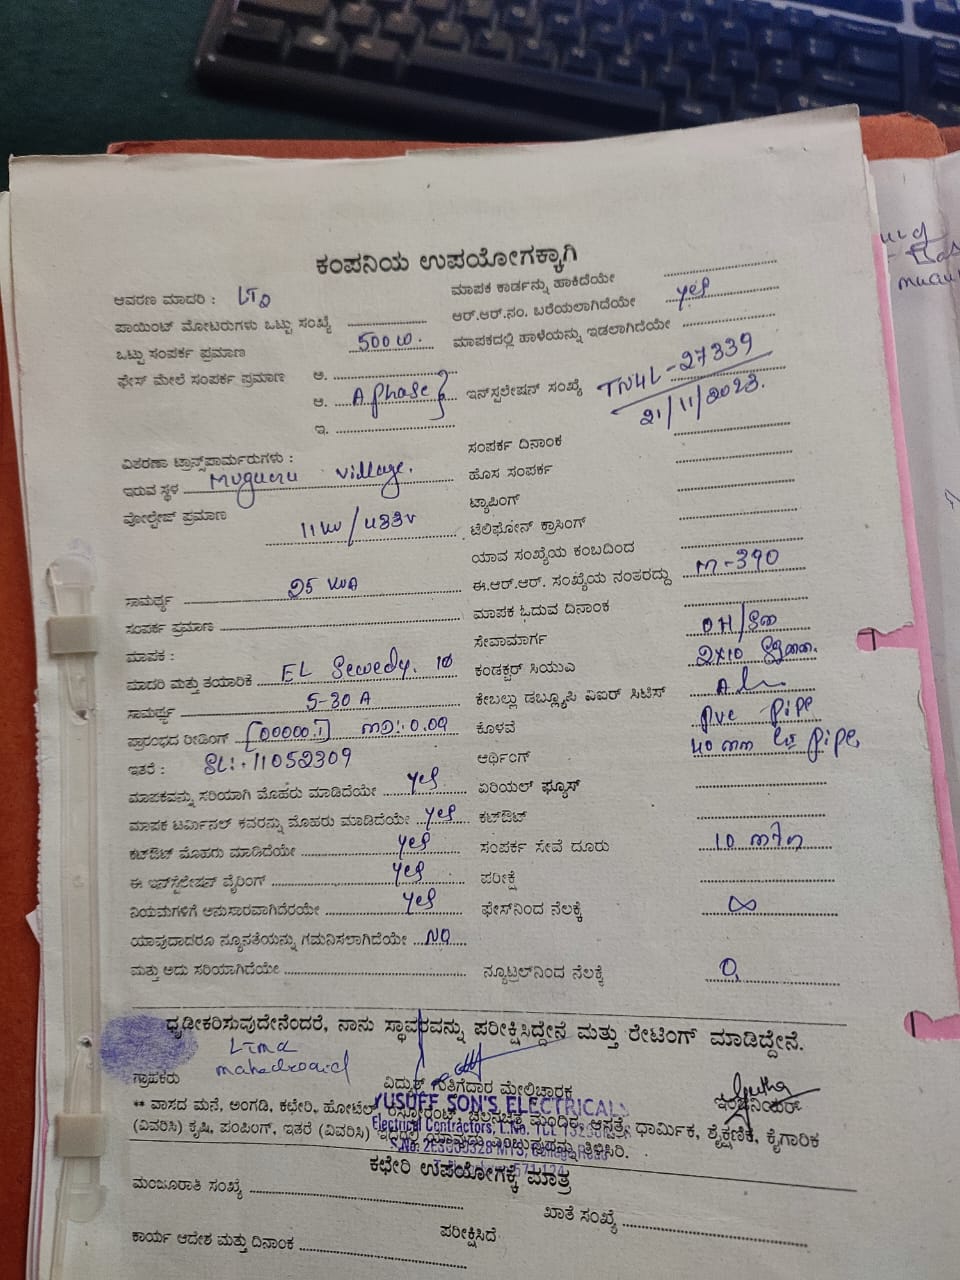 ಕಂಪನಿಯ ಉಪಯೋಗಕ್ಕಾಗಿ
ಆವರಣ ಮಾದರಿ :
ಮಾಪಕ ಕಾರ್ಡನ್ನು ಹಾಕಿದೆಯೇ
ಪಾಯಿಂಟ್ ಮೋಟರುಗಳು ಒಟ್ಟು ಸಂಖ್ಯೆ
ಆರ್.ಆರ್.ನಂ. ಬರೆಯಲಾಗಿದೆಯೇ yes
ಒಟ್ಟು ಸಂಪರ್ಕ ಪ್ರಮಾಣ 500 W.
ಮಾಪಕದಲ್ಲಿ ಹಾಳೆಯನ್ನು ಇಡಲಾಗಿದೆಯೇ
ಫೇಸ್ ಮೇಲೆ ಸಂಪರ್ಕ ಪ್ರಮಾಣ ಅ.
ಆ. A phase
ಇನ್‌ಸ್ಟಲೇಷನ್ ಸಂಖ್ಯೆ TN4L-27339
21/11/2023.
ಇ.
ವಿತರಣಾ ಟ್ರಾನ್ಸ್‌ಪಾರ್ಮರುಗಳು :
ಸಂಪರ್ಕ ದಿನಾಂಕ
ಇರುವ ಸ್ಥಳ Muguru village.
ಹೊಸ ಸಂಪರ್ಕ
ವೋಲ್ಟೇಜ್ ಪ್ರಮಾಣ 11 KV / 433V
ಟ್ಯಾಪಿಂಗ್
ಟೆಲಿಫೋನ್ ಕ್ರಾಸಿಂಗ್
ಯಾವ ಸಂಖ್ಯೆಯ ಕಂಬದಿಂದ
ಸಾಮರ್ಥ್ಯ 25 KVA
ಈ.ಆರ್.ಆರ್. ಸಂಖ್ಯೆಯ ನಂತರದ್ದು M-390
ಸಂಪರ್ಕ ಪ್ರಮಾಣ
ಮಾಪಕ ಓದುವ ದಿನಾಂಕ
ಮಾಪಕ :
ಸೇವಾಮಾರ್ಗ OH/
ಮಾದರಿ ಮತ್ತು ತಯಾರಿಕೆ EL Sewedy. 1Ø
ಕಂಡಕ್ಟರ್ ಸಿಯುಎ 2x10
ಸಾಮರ್ಥ್ಯ 5-30 A
ಕೇಬಲ್ಲು ಡಬ್ಲ್ಯೂಪಿ ವಿಐಆರ್ ಸಿಟಿಸ್
ಪ್ರಾರಂಭದ ರೀಡಿಂಗ್ [00000.1] MD:-0.09
ಕೊಳವೆ PVC pipe
ಇತರೆ : SL:-11052309
ಆರ್ಥಿಂಗ್ 40 mm pipe,
ಮಾಪಕವನ್ನು ಸರಿಯಾಗಿ ಮೊಹರು ಮಾಡಿದೆಯೇ yes
ಏರಿಯಲ್ ಫ್ಯೂಸ್
ಮಾಪಕ ಟರ್ಮಿನಲ್ ಕವರನ್ನು ಮೊಹರು ಮಾಡಿದೆಯೇ yes
ಕಟ್‌ಔಟ್
ಕಟ್‌ಔಟ್ ಮೊಹರು ಮಾಡಿದೆಯೇ yes
ಸಂಪರ್ಕ ಸೇವೆ ದೂರು 10
ಈ ಇನ್‌ಸ್ಟೆಲೇಷನ್ ವೈರಿಂಗ್ yes
ಪರೀಕ್ಷೆ
ನಿಯಮಗಳಿಗೆ ಅನುಸಾರವಾಗಿದೆರಯೇ yes
ಫೇಸ್‌ನಿಂದ ನೆಲಕ್ಕೆ ∞
ಯಾವುದಾದರೂ ನ್ಯೂನತೆಯನ್ನು ಗಮನಿಸಲಾಗಿದೆಯೇ NO
ಮತ್ತು ಅದು ಸರಿಯಾಗಿದೆಯೇ
ನ್ಯೂಟ್ರಲ್‌ನಿಂದ ನೆಲಕ್ಕೆ 0,
ಧೃಡೀಕರಿಸುವುದೇನೆಂದರೆ, ನಾನು ಸ್ಥಾವರವನ್ನು ಪರೀಕ್ಷಿಸಿದ್ದೇನೆ ಮತ್ತು ರೇಟಿಂಗ್ ಮಾಡಿದ್ದೇನೆ.
ಗ್ರಾಹಕರು
ವಿದ್ಯುತ್ ಗುತ್ತಿಗೆದಾರ ಮೇಲ್ವಿಚಾರಕ
ಇಂಜಿನಿಯರ್
YUSUFF SON'S ELECTRICALS
** ವಾಸದ ಮನೆ, ಅಂಗಡಿ, ಕಛೇರಿ, ಹೋಟೆಲ್ ಆಸ್ಪತ್ರೆ, ಧಾರ್ಮಿಕ, ಶೈಕ್ಷಣಿಕ, ಕೈಗಾರಿಕ
Electrical Contractors,
(ವಿವರಿಸಿ) ಕೃಷಿ, ಪಂಪಿಂಗ್, ಇತರೆ (ವಿವರಿಸಿ) ತಿಳಿಸಿರಿ.
ಕಛೇರಿ ಉಪಯೋಗಕ್ಕೆ ಮಾತ್ರ
ಮಂಜೂರಾತಿ ಸಂಖ್ಯೆ
ಖಾತೆ ಸಂಖ್ಯೆ
ಕಾರ್ಯ ಆದೇಶ ಮತ್ತು ದಿನಾಂಕ
ಪರೀಕ್ಷಿಸಿದೆ